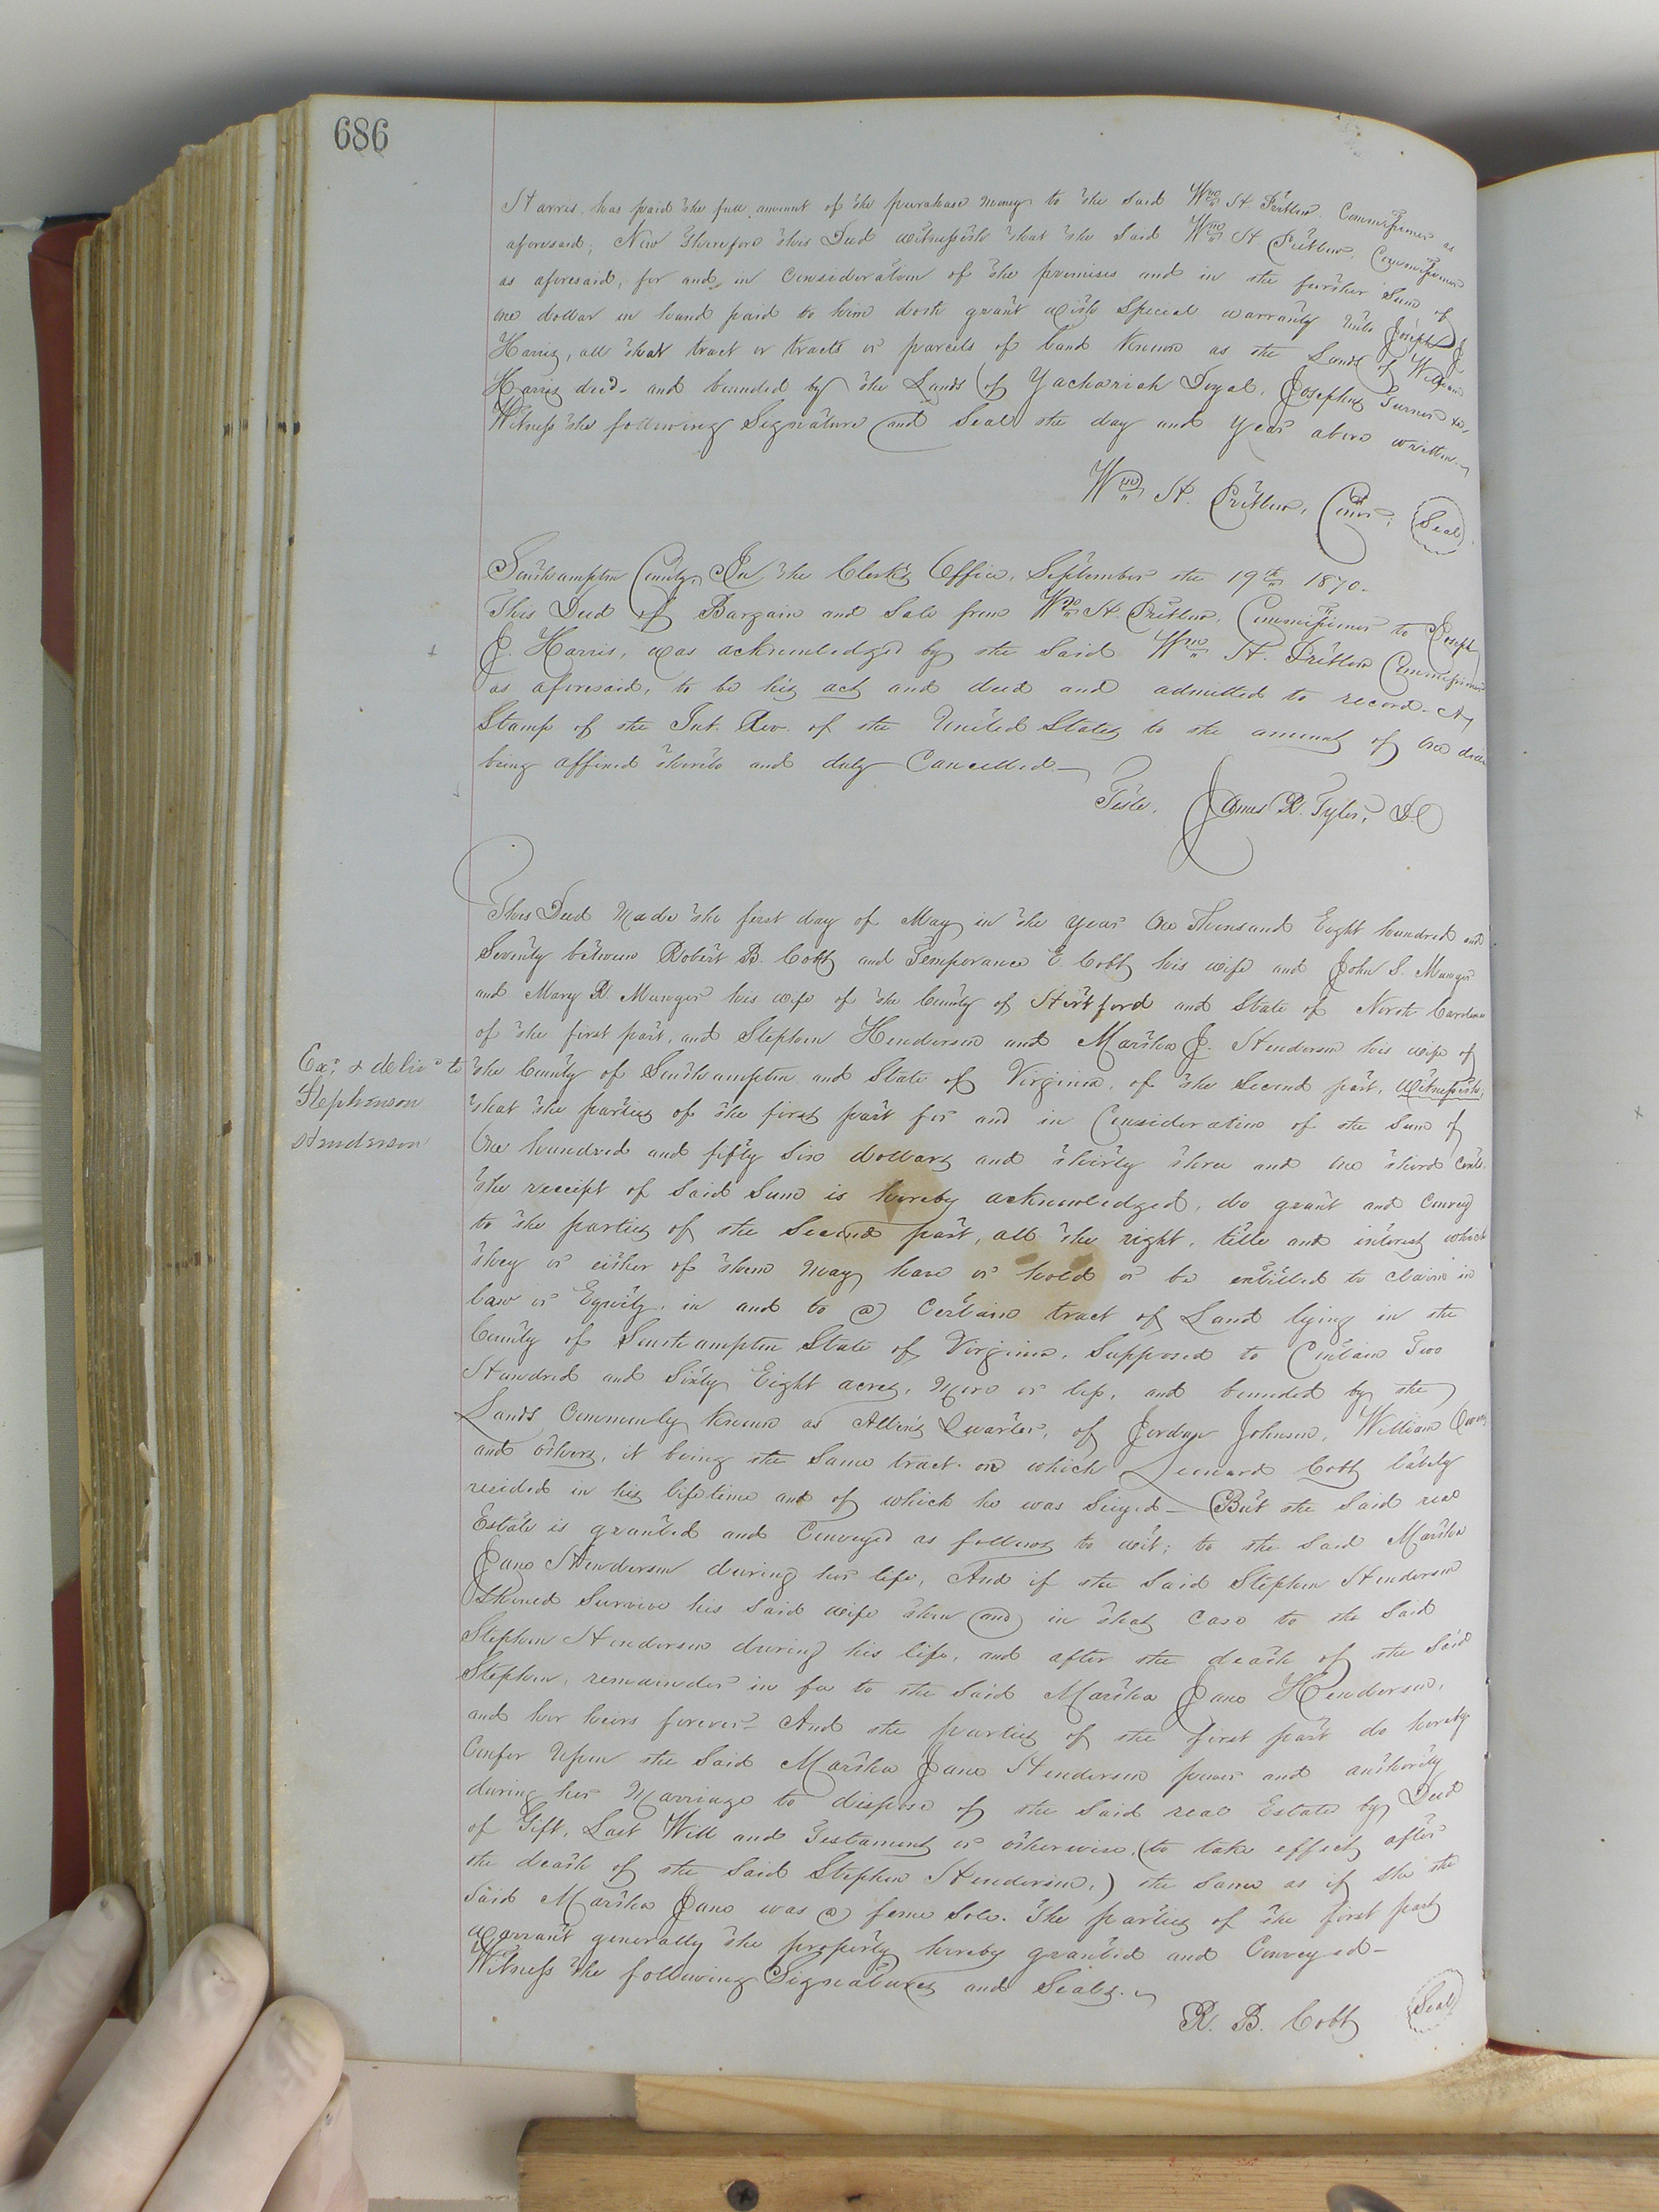 686
Harris, has paid the full amount of the purchase money to the said Wm H. Pretlow, Commissioner as
aforesaid; Now Therefore this Deed witnesseth that the said Wm H Pretlow, Commissioner
as aforesaid, for and in Consideration of the premises and in the further Sum of
one dollar in hand paid to him doth grant with Special warranty unto Joseph J.
Harris, all that tract or tracts or parcels of land Known as the Lands of William
Harris decd- and bounded by the Lands of Zachariah Doyal, Josephus Turner &c,
Witness the following Signature and Seal the day and year above written.
Wm H. Pretlow, Comr, Seal
Southampton County, In the Clerk's Office, September the 19th 1870.
This Deed of Bargain and Sale from Wm H. Pretlow, Commissioner to Joseph
J. Harris, was acknowledged by the Said Wm H. Pretlow Commissioner
as aforesaid, to be his act and deed and admitted to record- A
Stamp of the Int. Rev. of the United States to the amount of One dollar
being affixed thereto and duly Cancelled.
Teste, James R. Tyler, D.C
This Deed Made the first day of May in the year One Thousand Eight hundred and
Seventy between Robert B. Cobb and Temperance E. Cobb his wife and John S. Munger
and Mary R. Munger his wife of the County of Hertford and State of North Carolina
of the first part, and Stephen Henderson and Martha J. Henderson his wife of
Exd & delivd to
Stephenson
Henderson
the County of Southampton and State of Virginia, of the Second part, Witnesseth;
that the parties of the first part for and in Consideration of the Sum of
One hundred and fifty Six dollars and thirty three and one third Cents.
the receipt of said Sum is hereby acknowledged, do grant and Convey
to the parties of the Second part, all the right, title and interest which
they or either of them may have or hold or be entitled to claim in
law or Equity, in and to a Certain tract of Land lying in the
County of Southampton State of Virginia, Supposed to Contain Two
Hundred and Sixty Eight acres, More or less, and bounded by the
Lands Commonly Known as Allen's Quarter, of Jordan Johnson, William
and others, it being the Same tract on which Leonard Cobb lately
resided in his lifetime and of which he was Siezed- But the Said real
Estate is granted and Conveyed as follows to wit; to the Said Martha
Jane Henderson during her life, And if the Said Stephen Henderson
Should Survive his said wife then and in that Case to the Said
Stephen Henderson during his life, and after the death of the Said
Stephen, remainder in fee to the Said Martha Jane Henderson,
and her heirs forever- And the parties of the first part do hereby
Confer Upon the Said Martha Jane Henderson power and authority
during her Marriage to dispose of the Said real Estate by Deed
of Gift, Last Will and Testament or otherwise, (to take effect after
the death of the Said Stephen Henderson,) the Same as if she the
Said Martha Jane was a feme Sole. The parties of the first part
warrant generally the property hereby granted and Conveyed-
Witness the following Signatures and Seals.
R. B. Cobb Seal